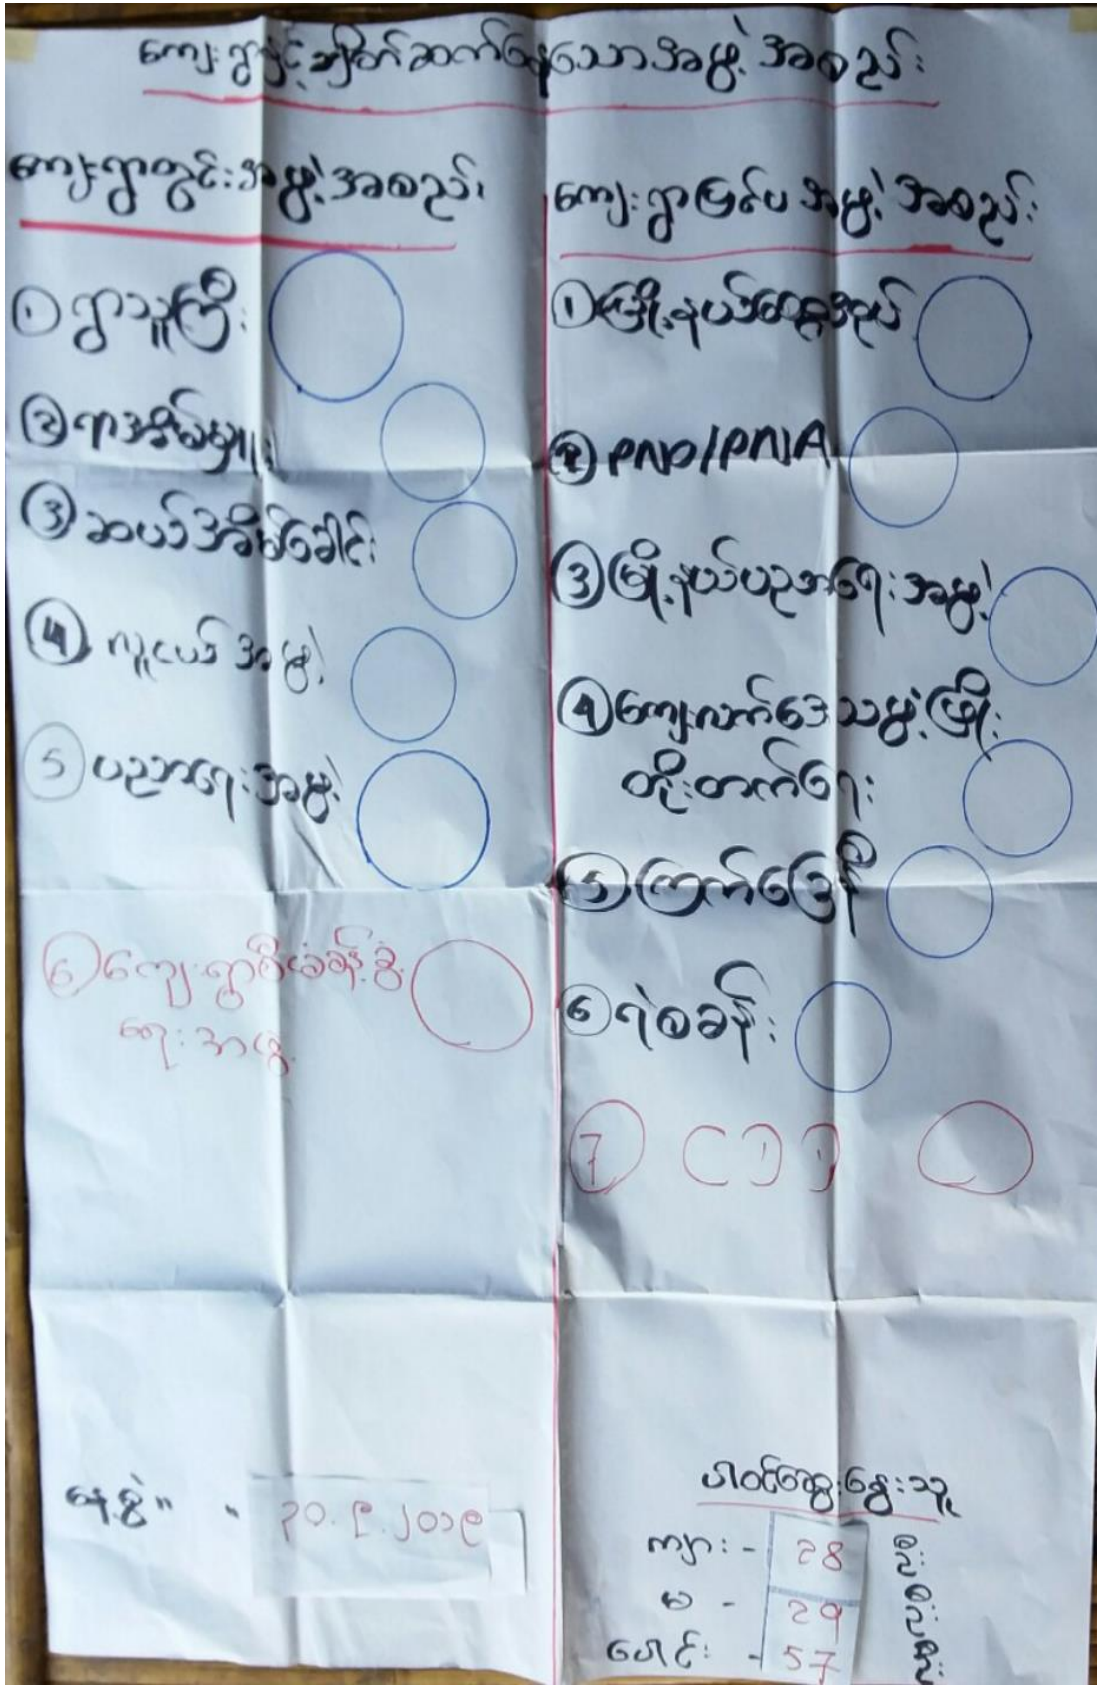 ကျေးရွာနှင့်ချိတ်ဆက်နေသောအဖွဲ့အစည်း
ကျေးရွာတွင်းအဖွဲ့အစည်း
① ရွာသူကြီး
② ရာအိမ်မှူး
③ ဆယ်အိမ်ခေါင်း
④ လူငယ်အဖွဲ့
⑤ ပညာရေးအဖွဲ့
⑥ ကျေးရွာစီမံခန့်ခွဲ
ရေးအဖွဲ့
နေ့စွဲ။ - ၃၀.၉.၂၀၁၉
ကျေးရွာပြင်ပအဖွဲ့အစည်း
① မြို့နယ်ထွေအုပ်
② PNO/PNA
③ မြို့နယ်ပညာရေးအဖွဲ့
④ ကျေးလက်ဒေသဖွံ့ဖြိုး
တိုးတက်ရေး
⑤ ကြက်ခြေနီ
⑥ ရဲစခန်း
⑦
ပါဝင်ဆွေးနွေးသူ
ကျား - 28
မ - 29
ပေါင်း - 57